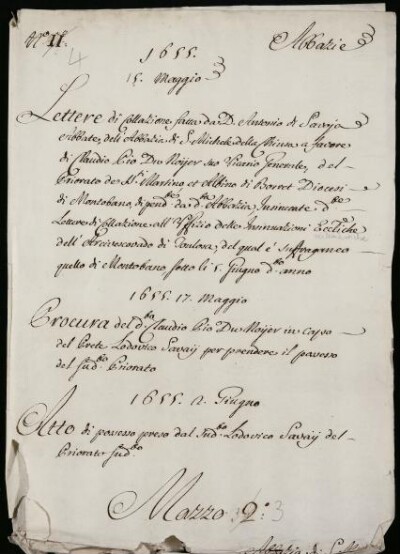 N.º II.º 4 Abbazie
1655.
15. Maggio
Lettere di collazione fatta da D. Antonio di Savoja
Abbate, dell'Abbazia di S. Michele della Chiusa a favore
di Claudio Pio Du Noijer suo Vicario Generale, del
Priorato de S.ti Martino et Albino di Diocesi
di Montobano, dipend.te da d.ta Abbazia, Insinuate d.te
Lettere di collazione all'Ufficio delle Insinuazioni Eccl.che
dell'Arcivescovado di Tolosa, del qual è suffraganeo
quello di Montobano sotto li 5. Giugno d.to anno
1655. 17. Maggio
Procura del d.to Claudio Pio Du Noijer in capo
del Prete Lodovico Savaij per prendere il possesso
del sud.to Priorato
1655. 2. Giugno
Atto di possesso preso dal sud.to Lodovico Savaij del
Priorato sud.to
Mazzo 2.º 3